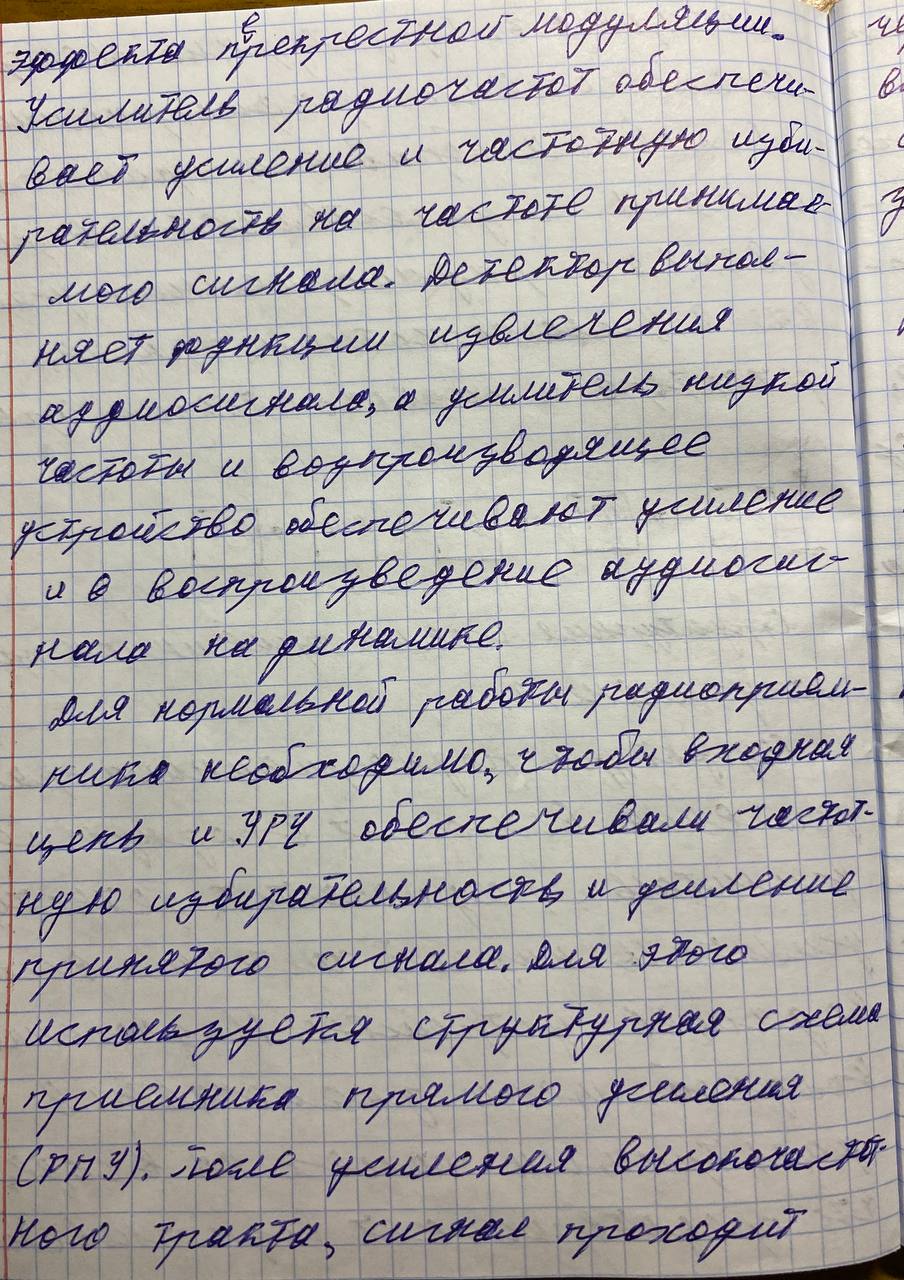 эффекта перекрестной модуляции.
Усилитель радиочастот обеспечи-
вает усиление и частотную изби-
рательность на частоте принимае-
мого сигнала. Детектор выпол-
няет функции извлечения
аудиосигнала, а усилитель низкой
частоты и возпроизводящее
устройство обеспечивают усиление
и в воспроизведение аудиосиг-
нала на динамике.
Для нормальной работы радиоприем-
ника необходимо, чтобы входная
цепь и УРЧ обеспечивали частот-
ную избирательность и усиление
принятого сигнала. Для этого
используется структурная схема
приемника прямого усиления
(РПУ). После усиления высокочастот-
ного тракта, сигнал проходит
че